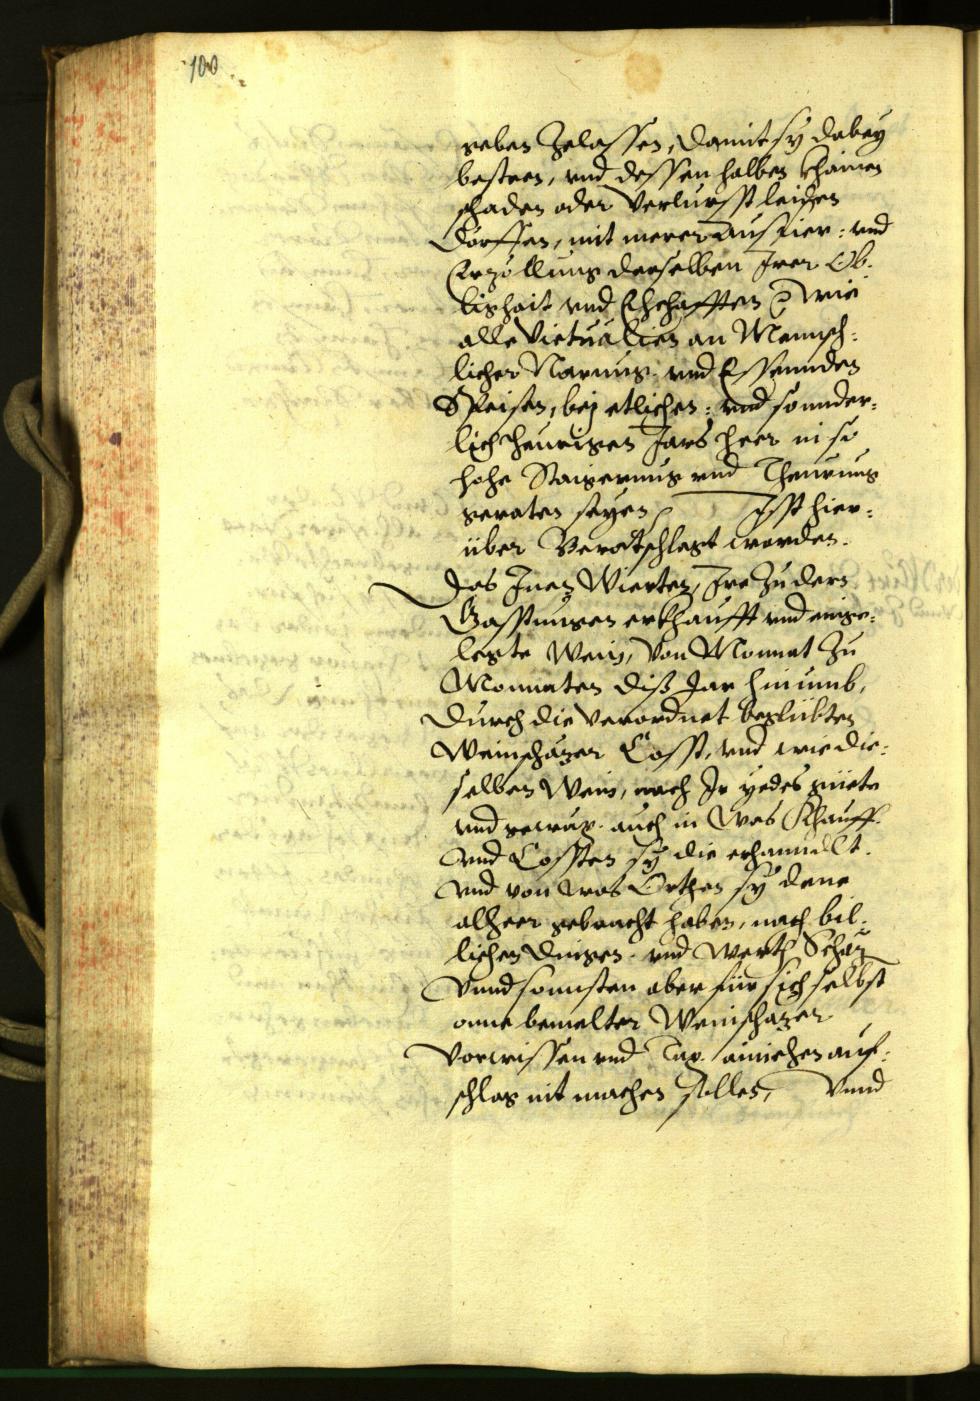 100
geben Zelassen, damit sy dabey
besteen, vnd dessen halben khainen
schaden oder Verlursst leiden
dörffen, mit merer Ausfier: vnd
Erzöllung derselben Irer Ob:
lighait vnd Ehehafften wie
alle Victualien an Mennsch:
licher Narung vnd Essennden
Speisen, bej etlichen: vnd sonnder:
lich heurigen Jars heer in so
hohe Staigerung vnd Theurung
geraten seyen Ist hier:
über Beratschlagt worden.
Das Inen Wierten, Ire zu dern
Gasstungen erkhaufft vnd einge:
legte Wein, von Monnat Zu
Monnaten diß Jar hinumb,
durch die Verordnet beglübten
Weinschäzer Cosst, vnd wie die:
selben Wein, nach Ir yedes güete
vnd gewäx. auch in was Khauff
vnd Cossten sy die erhanndlt.
vnd von was Orthen sy dene
alheer gebracht haben, nach bil:
lichen dingen vnd Werth Schaz
Vnnd sonnsten aber für sich selbst
onne bemelter Weinschazer
Vorwissen vnd Tax ainichen auf:
schlag nit machen sollen, Vnnd